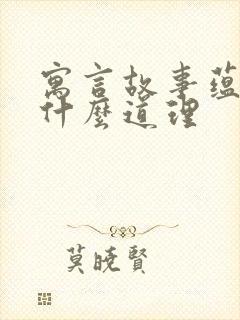 寓言故事蕴
什麼道理
莫曉賢